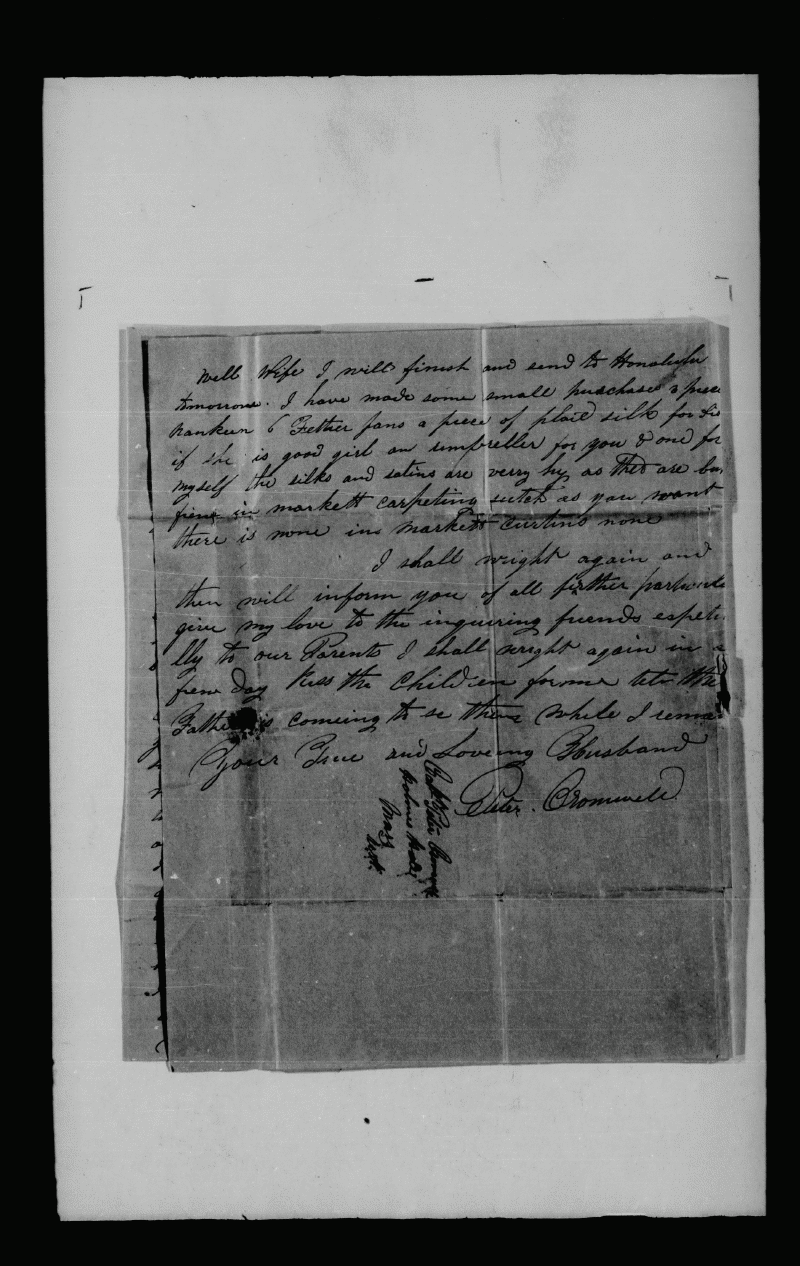 Well Wife I will finish and send to Honolulu
tomorrow. I have made some small puschases 2 piece
Nankeen 6 Fether fans a piece of plaid silk for
if she is good girl an umbreller for you & one for
myself the silks and satins are verry hy as thed are but
fiew in markett carpeting sutch as you want
there is none in markett Curtins none
I shall wright again and
then will inform you of all firther
give my love to the inquiring friends espete
lly to our Parents I shall wright again in a
fiew day Kiss the Children for me tell them
Father is comeing to se them while I remain
Your True and Loveing Husband
Peter Cromwell
Capt Peter
Holmes Hole
Mass